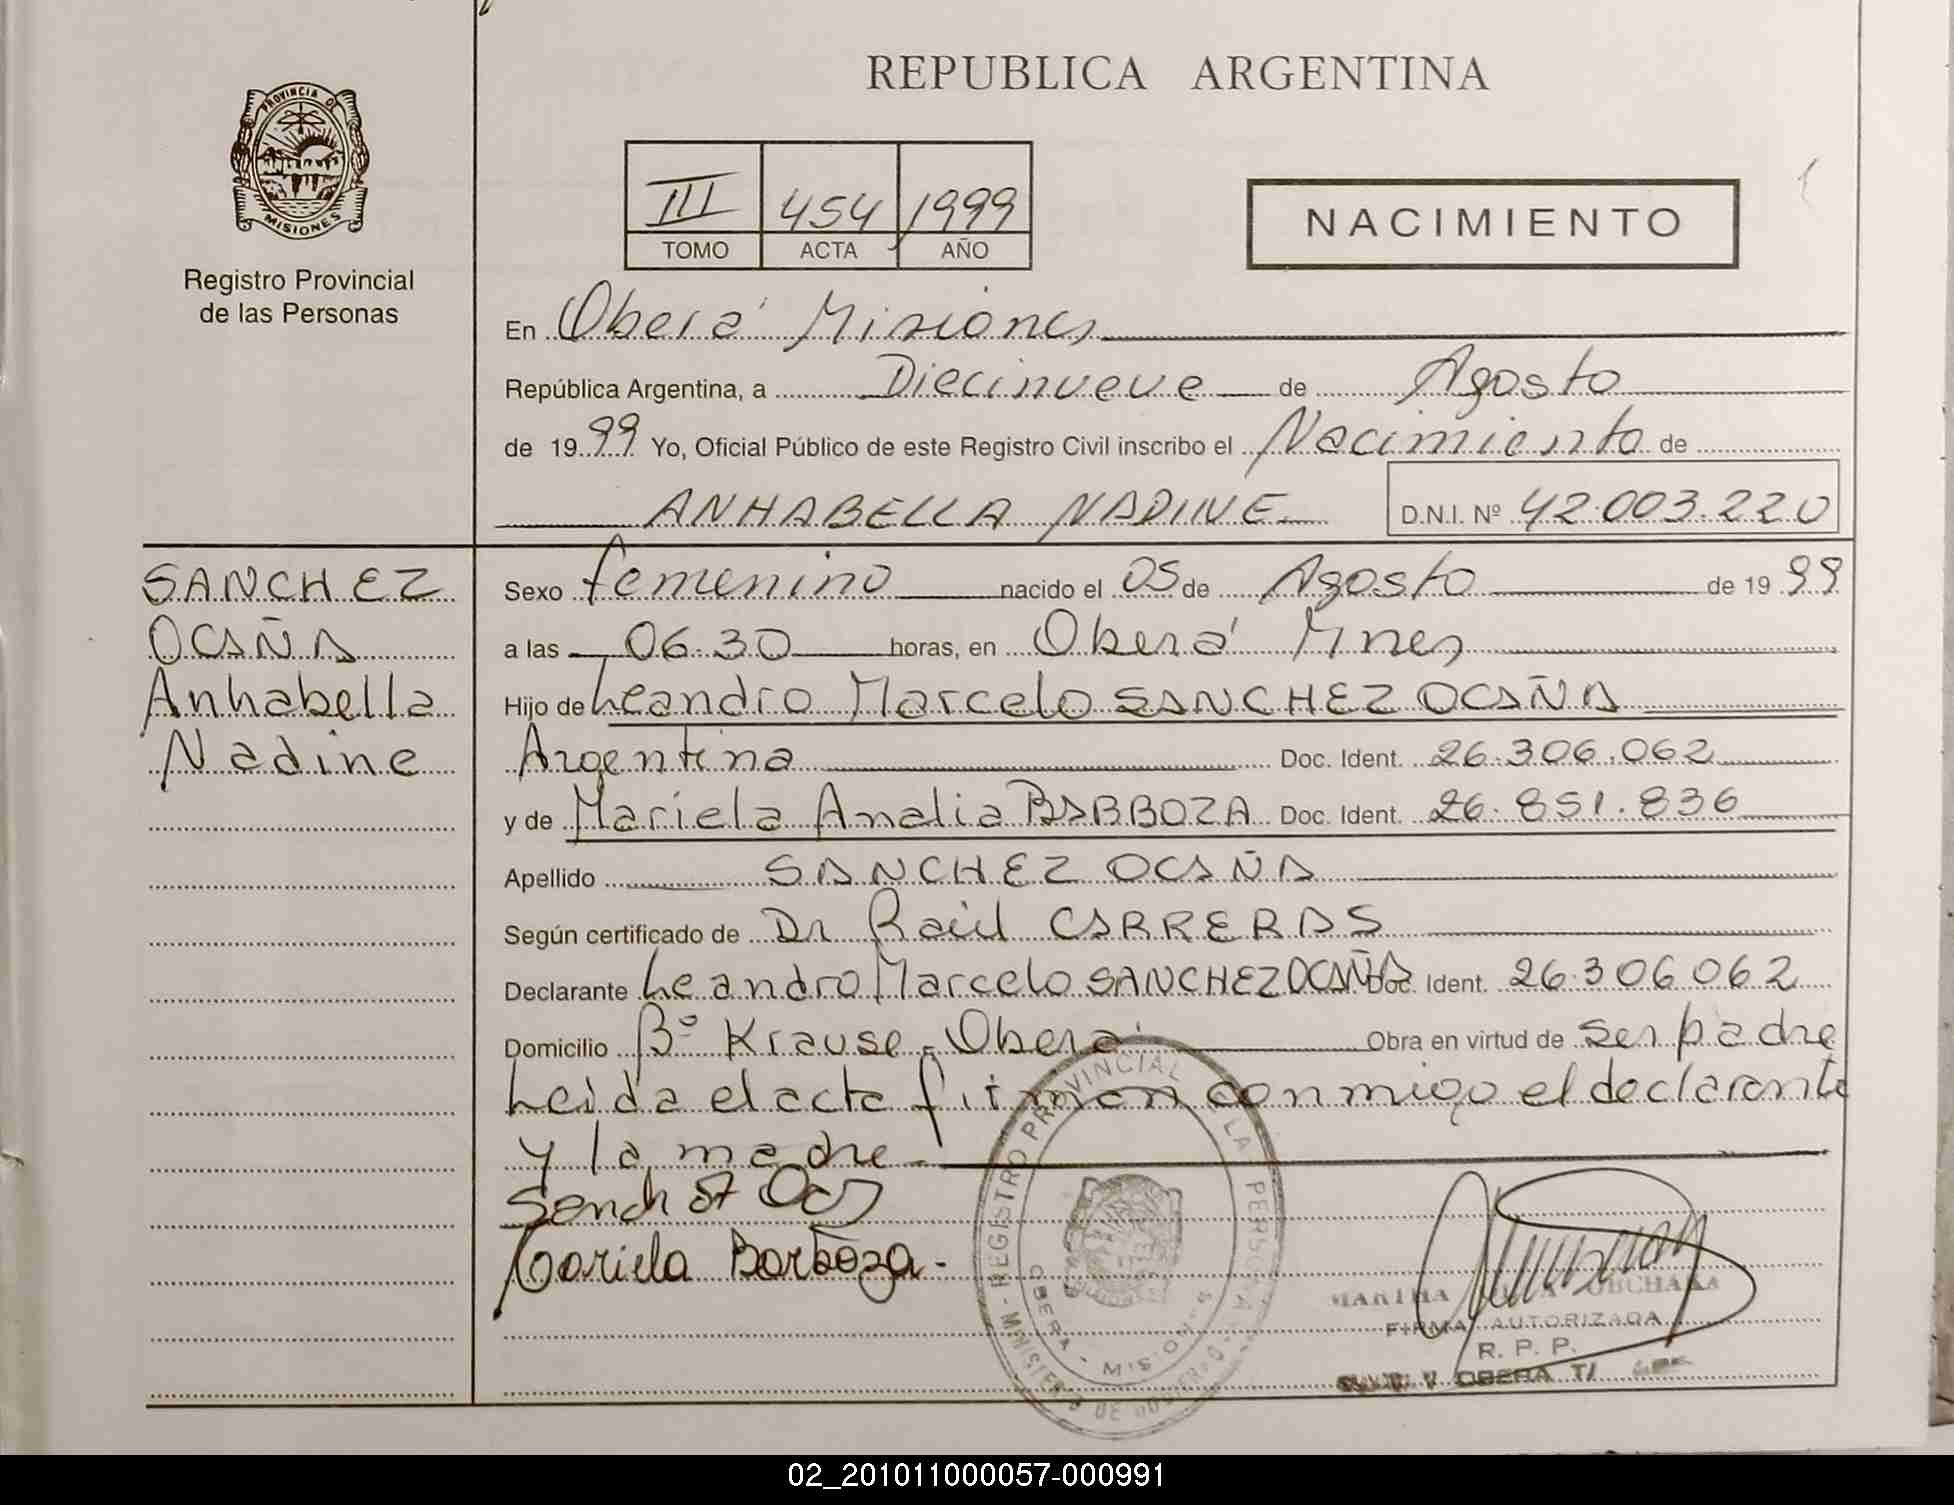 REPUBLICA ARGENTINA
PROVINCIA DE
MISIONES
Registro Provincial
de las Personas
III 454 1999
TOMO ACTA AÑO
NACIMIENTO
En Oberá Misiones
República Argentina, a Diecinueve de Agosto
de 1999 Yo, Oficial Público de este Registro Civil inscribo el Nacimiento de
ANHABELLA NADINE D.N.I. Nº 42.003.220
SANCHEZ
OCAÑA
Anhabella
Nadine
Sexo femenino nacido el 05 de Agosto de 1999
a las 06.30 horas, en Oberá Mnes
Hijo de Leandro Marcelo SANCHEZ OCAÑA
Argentina Doc. Ident. 26.306.062
y de Mariela Analia BARBOZA Doc. Ident. 26.851.836
Apellido SANCHEZ OCAÑA
Según certificado de Dr Raúl CARRERAS
Declarante Leandro Marcelo SANCHEZ OCAÑA Doc. Ident. 26.306.062
Domicilio Bº Krause - Oberá Obra en virtud de ser padre
Leida el acta firman conmigo el declarante
y la madre
Mariela Barboza.
REGISTRO PROVINCIAL DE LA PERSONA
MINISTERIO DE GOBIERNO
OBERA - MISIONES
MARTHA
FIRMA AUTORIZADA
R. P. P.
OBERA
02_201011000057-000991